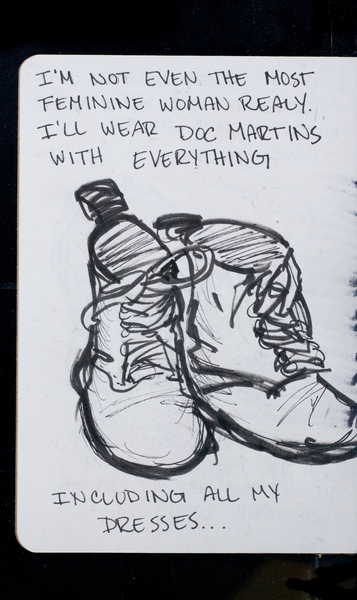 I'M NOT EVEN THE MOST
FEMININE WOMAN REALY.
I'LL WEAR DOC MARTINS
WITH EVERYTHING
INCLUDING ALL MY
DRESSES...